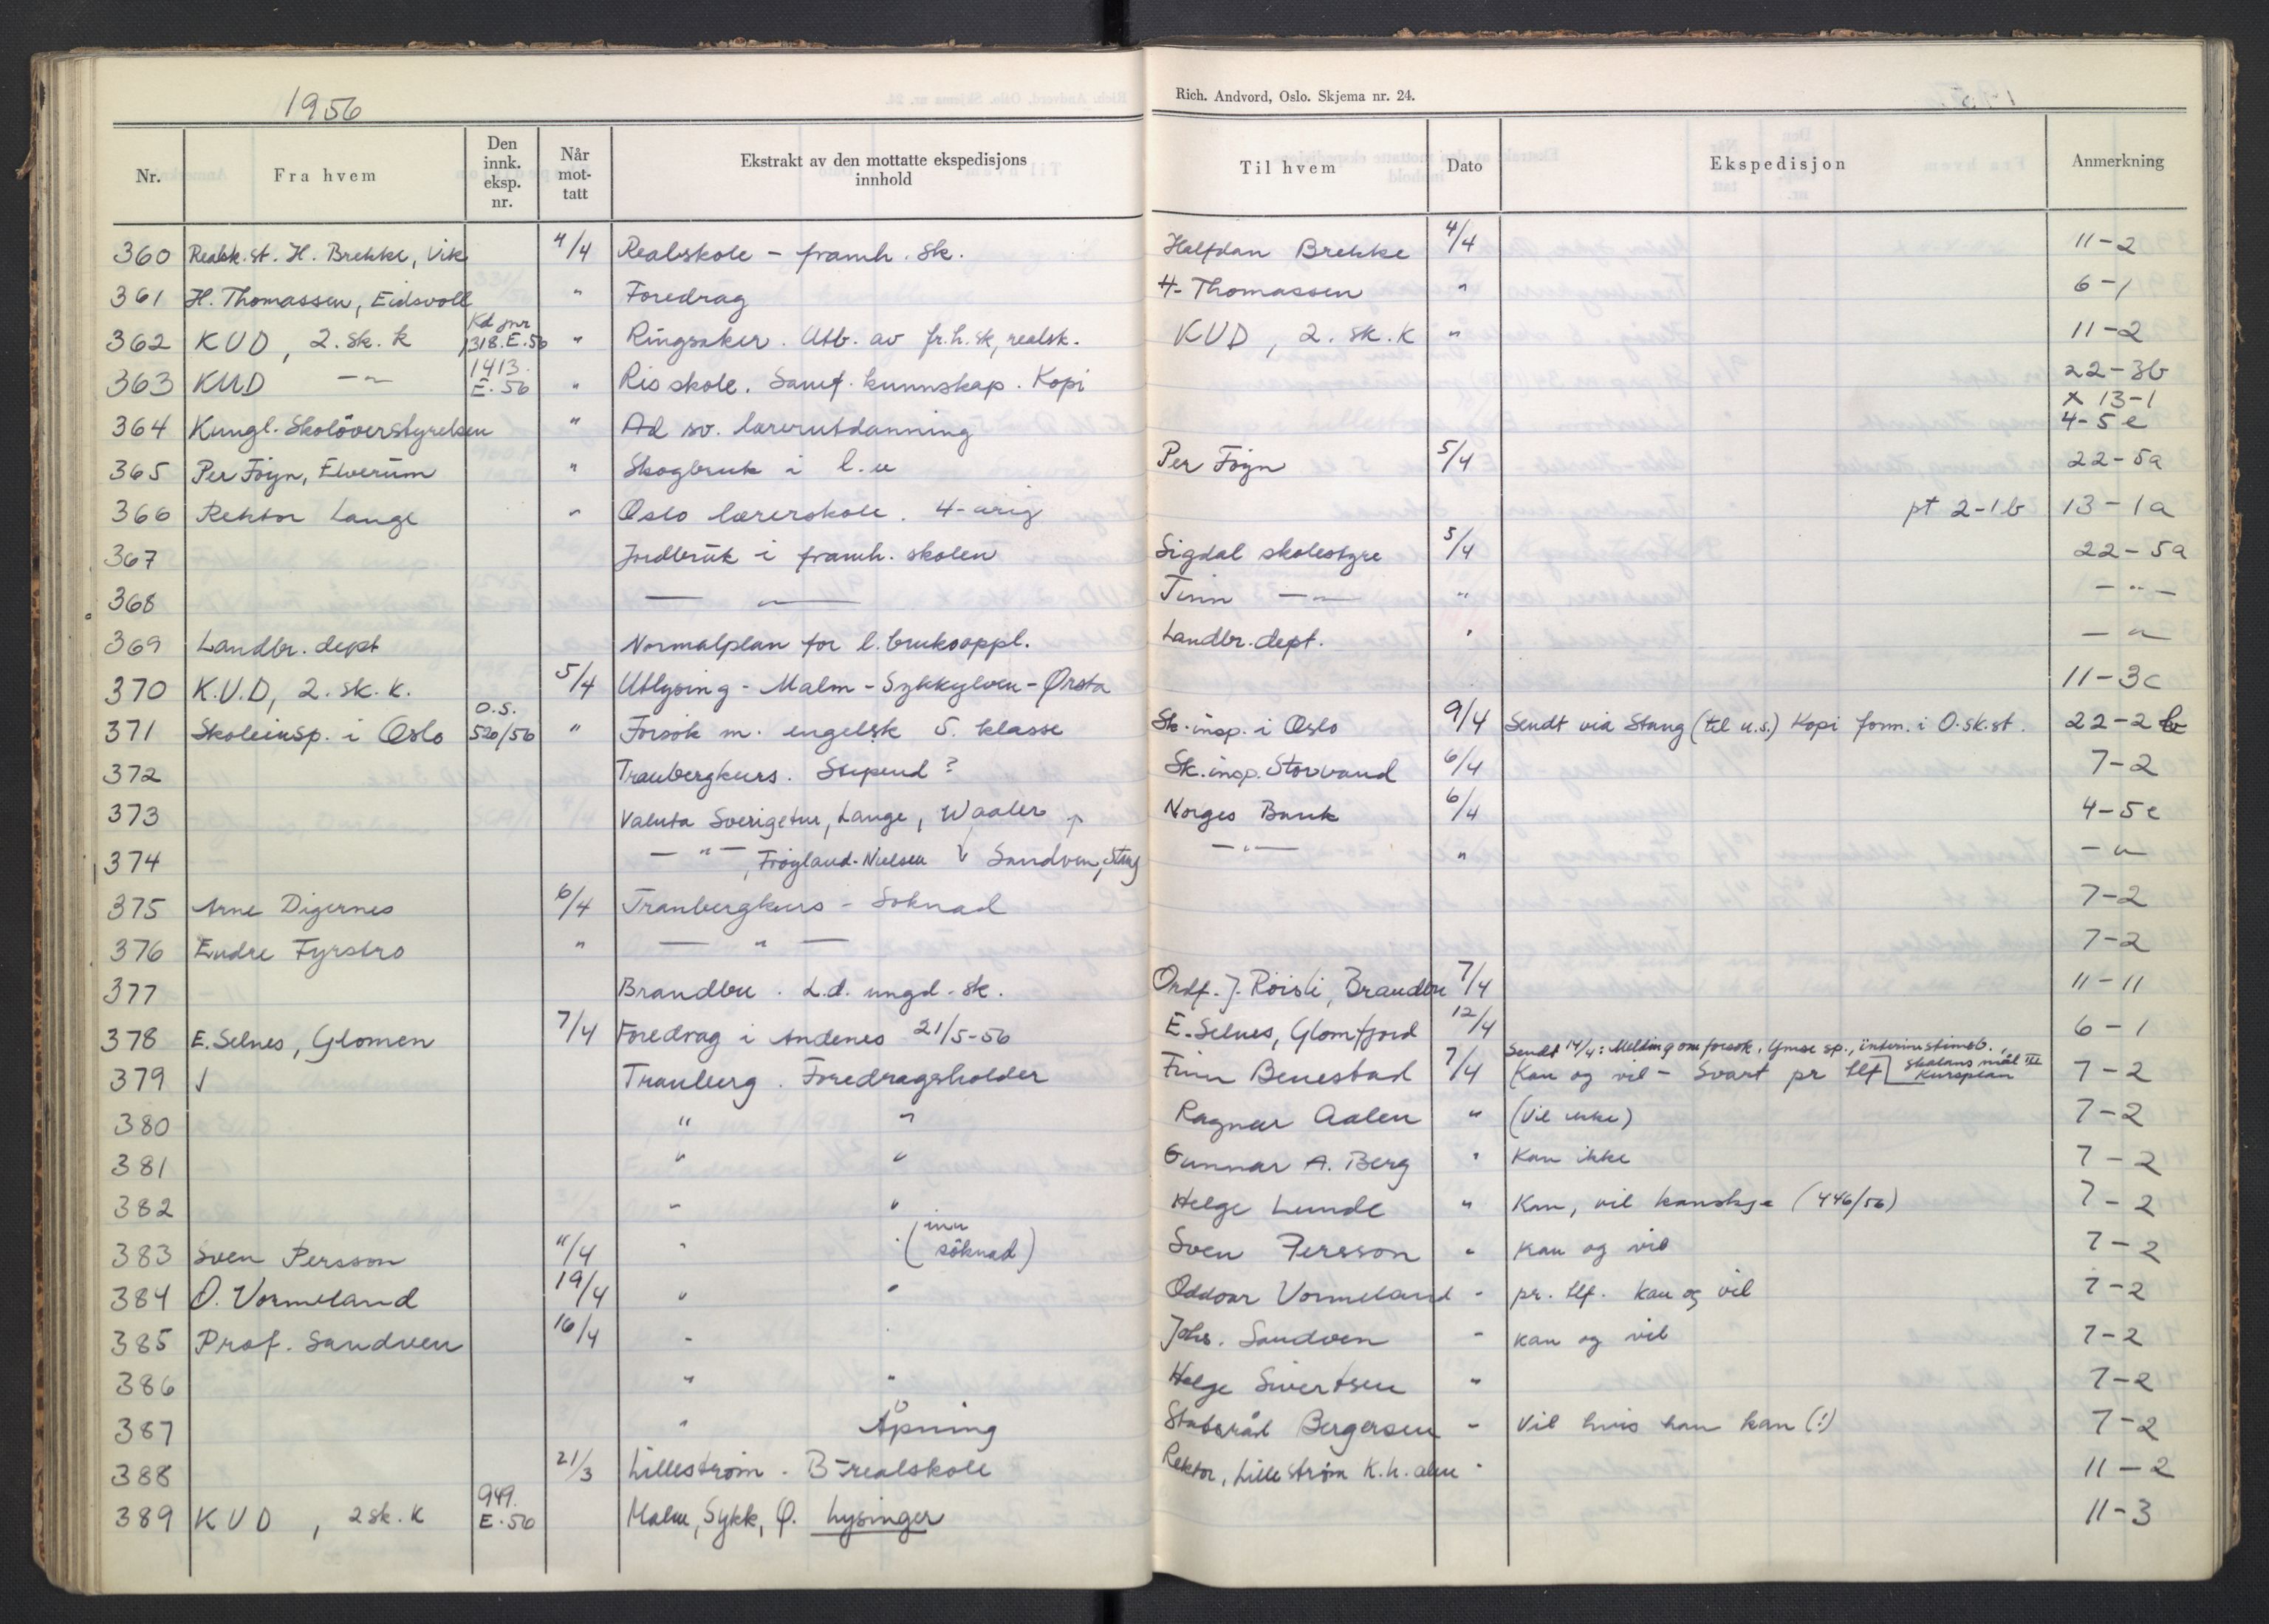 1956
Rich. Andvord, Oslo. Skjema nr. 24.
Nr. Fra hvem Den innk. eksp. nr. Når mot-tatt Ekstrakt av den mottatte ekspedisjons innhold Til hvem Dato Ekspedisjon Anmerkning
360 Realsk.st. H. Brekke, Vik 4/4 Realskole - framh. sk. Halfdan Brekke 4/4 11-2
361 H. Thomassen, Eidsvoll " Foredrag H. Thomassen " 6-1
362 KUD, 2. sk. k Kd jnr 1318.E.56 " Ringsaker. Utb. av fr.h.sk, realsk. KUD, 2. sk. K " 11-2
363 KUD —"— 1413. E. 56 " Ris skole. Samf. kunnskap. Kopi 22-3b
x 13-1
364 Kungl. Skolöverstyrelsen " Ad sv. lærerutdanning 4-5e
365 Per Föyn, Elverum " Skogbruk i l.u Per Föyn 5/4 22-5a
366 Rektor Lange " Oslo lærerskole. 4-årig pt 2-1b 13-1a
367 Jordbruk i framh. skolen Sigdal skolestyre 5/4 22-5a
368 — " — Tinn —"— " —"—
369 Landbr. dept Normalplan for l.bruksoppl. Landbr. dept. " —"—
370 K.U.D, 2. sk. k. 5/4 Utlysing - Malm - Sykkylven - Ørsta 11-3c
371 Skoleinsp. i Oslo O.S. 520/56 " Forsök m. engelsk 5. klasse Sk.insp. i Oslo 9/4 Sendt via Stang (til u.s.) Kopi form. i O.sk.st. 22-2b
372 Tranbergkurs. Stipend? Sk.insp. Storvand 6/4 7-2
373 Valuta Sverigetur, Lange, Waaler Norges Bank 6/4 4-5e
374 —"—, Fröyland-Nielsen Sandven, Stang —"— " —"
375 Arne Digernes 6/4 Tranbergkurs - Söknad 7-2
376 Endre Fyrstro " — " — 7-2
377 Brandbu. L.d. ungd.sk. Ordf. J. Röisli, Brandbu 7/4 11-11
378 E. Selnes, Glomen 7/4 Foredrag i Andenes 21/5-56 E. Selnes, Glomfjord 12/4 6-1
Sendt 14/4: Melding om forsøk. Ymse sp.,
379 Tranberg. Foredragsholder Finn Benestad 7/4 Kan og vil - Svart pr tlf skolans mål III Kursplan 7-2
380 " " Ragnar Aalen " (Vil ikke) 7-2
381 " " Gunnar A. Berg " Kan ikke 7-2
382 " " Helge Lunde " Kan, vil kanskje (446/56) 7-2
383 Sven Persson 11/4 " " (inn söknad) Sven Persson " kan og vil 7-2
384 O. Vormeland 19/4 " " Oddvar Vormeland " pr. tlf. kan og vil 7-2
385 Prof. Sandven 16/4 " " Johs. Sandven " kan og vil 7-2
386 " " Helge Sivertsen " 7-2
387 " Åpning Statsråd Bergersen " Vil hvis han kan (!) 7-2
388 21/3 Lilleström - B-realskole Rektor, Lilleström K.h. alm " 11-2
389 KUD, 2 sk. K 949. E. 56 Malm, Sykk, Ø. Lysinger 11-3